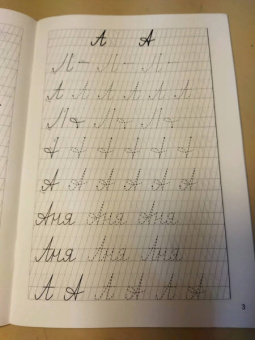 А А
А А А А А А
А А А А А А
Аня Аня Аня
Аня Аня Аня
А А А А А А
3